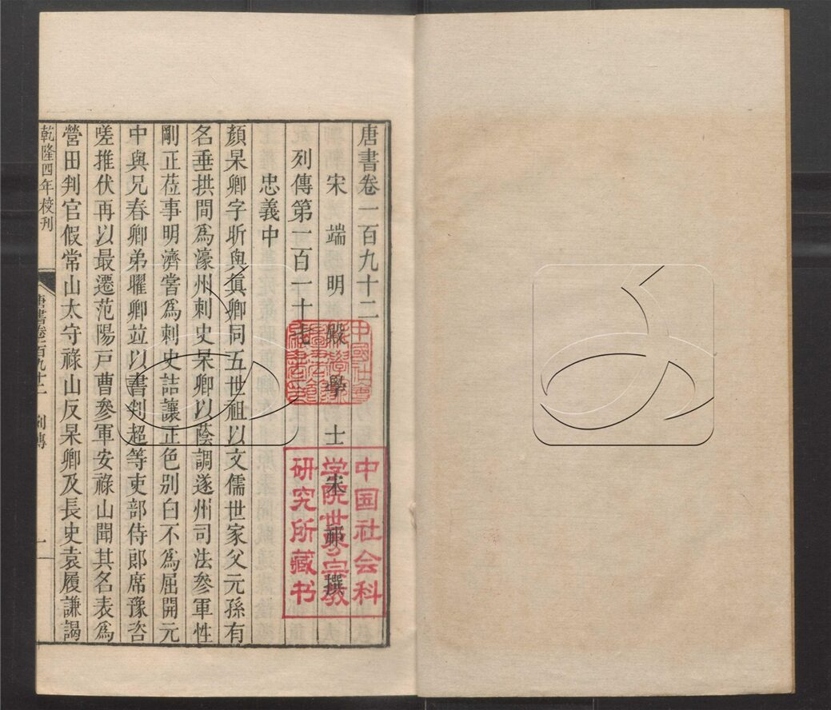 唐書卷一百九十二
宋端明殿學士宋祁撰
列傳第一百一十七
忠義中
顏杲卿字昕與眞卿同五世祖以文儒世家父元孫有
名垂拱間爲濠州刺史杲卿以蔭調遂州司法參軍性
剛正莅事明濟嘗爲刺史詰讓正色別白不爲屈開元
中與兄春卿弟曜卿竝以書判超等吏部侍郎席豫咨
嗟推伏再以最遷范陽戶曹參軍安祿山聞其名表爲
營田判官假常山太守祿山反杲卿及長史袁履謙謁
乾隆四年校刊
唐書卷一百九十二
列傳
一
中国社会科
学院世界宗教
研究所藏书